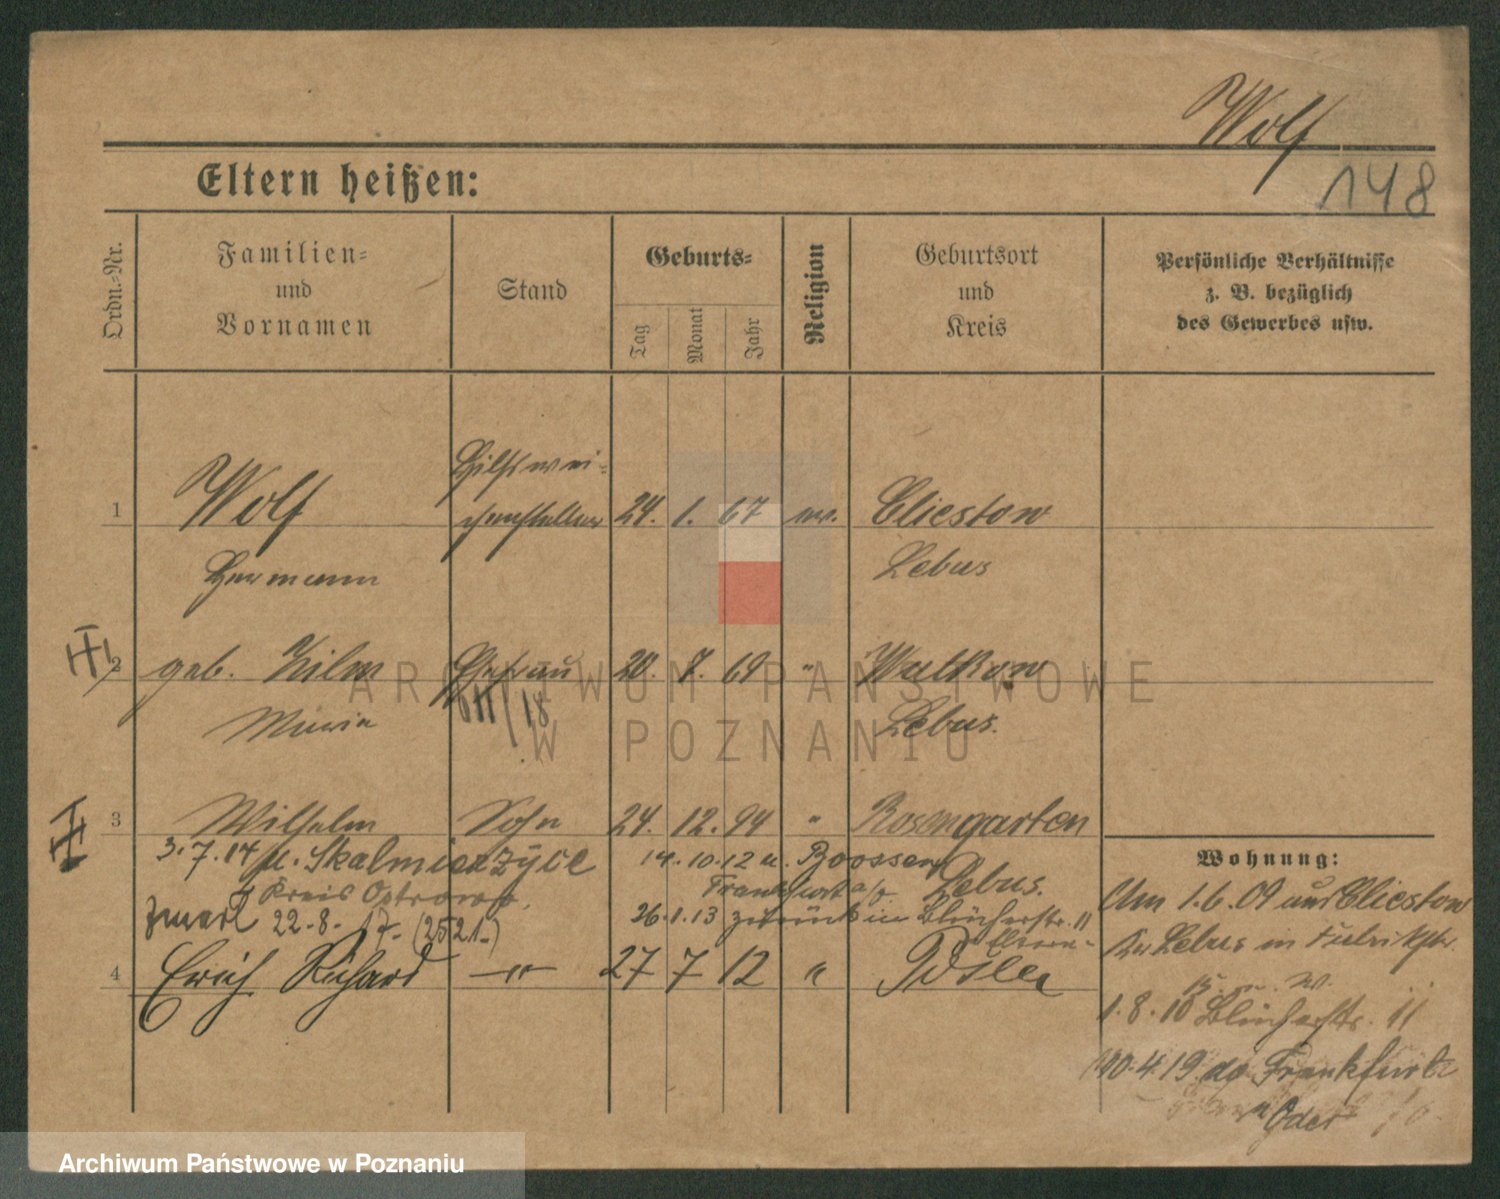 Wolf
148
Eltern heißen:
Ordn.-Nr.
Familien-
und
Vornamen
Stand
Geburts-
Tag
Monat
Jahr
Religion
Geburtsort
und
Kreis
Persönliche Verhältnisse
z. B. bezüglich
des Gewerbes usw.
1 Wolf Hilfswei-
chensteller 24. 1. 67 ev. Cliestow
Hermann Lebus
2 geb. Zilm Ehefrau 20. 7. 69 " Wulkow
Maria Lebus.
3 Wilhelm Sohn 24. 12. 94 " Rosengarten
3.7.14 n. Skalmierzyce 14.10.12 n. Boossen
Kreis Frankfurt a/O Lebus.
22.8.17. (2521.) 26.1.13 zurück in Blücherstr. 11
Eltern-
4 Erich Richard —"— 27 7 12 " Posen
Wohnung:
Am 1.6.09 aus Cliestow
Kr. Lebus in
1.8.10 Blücherstr. 11
4.19 Frankfurt
Oder
ARCHIWUM PAŃSTWOWE
W POZNANIU
Archiwum Państwowe w Poznaniu